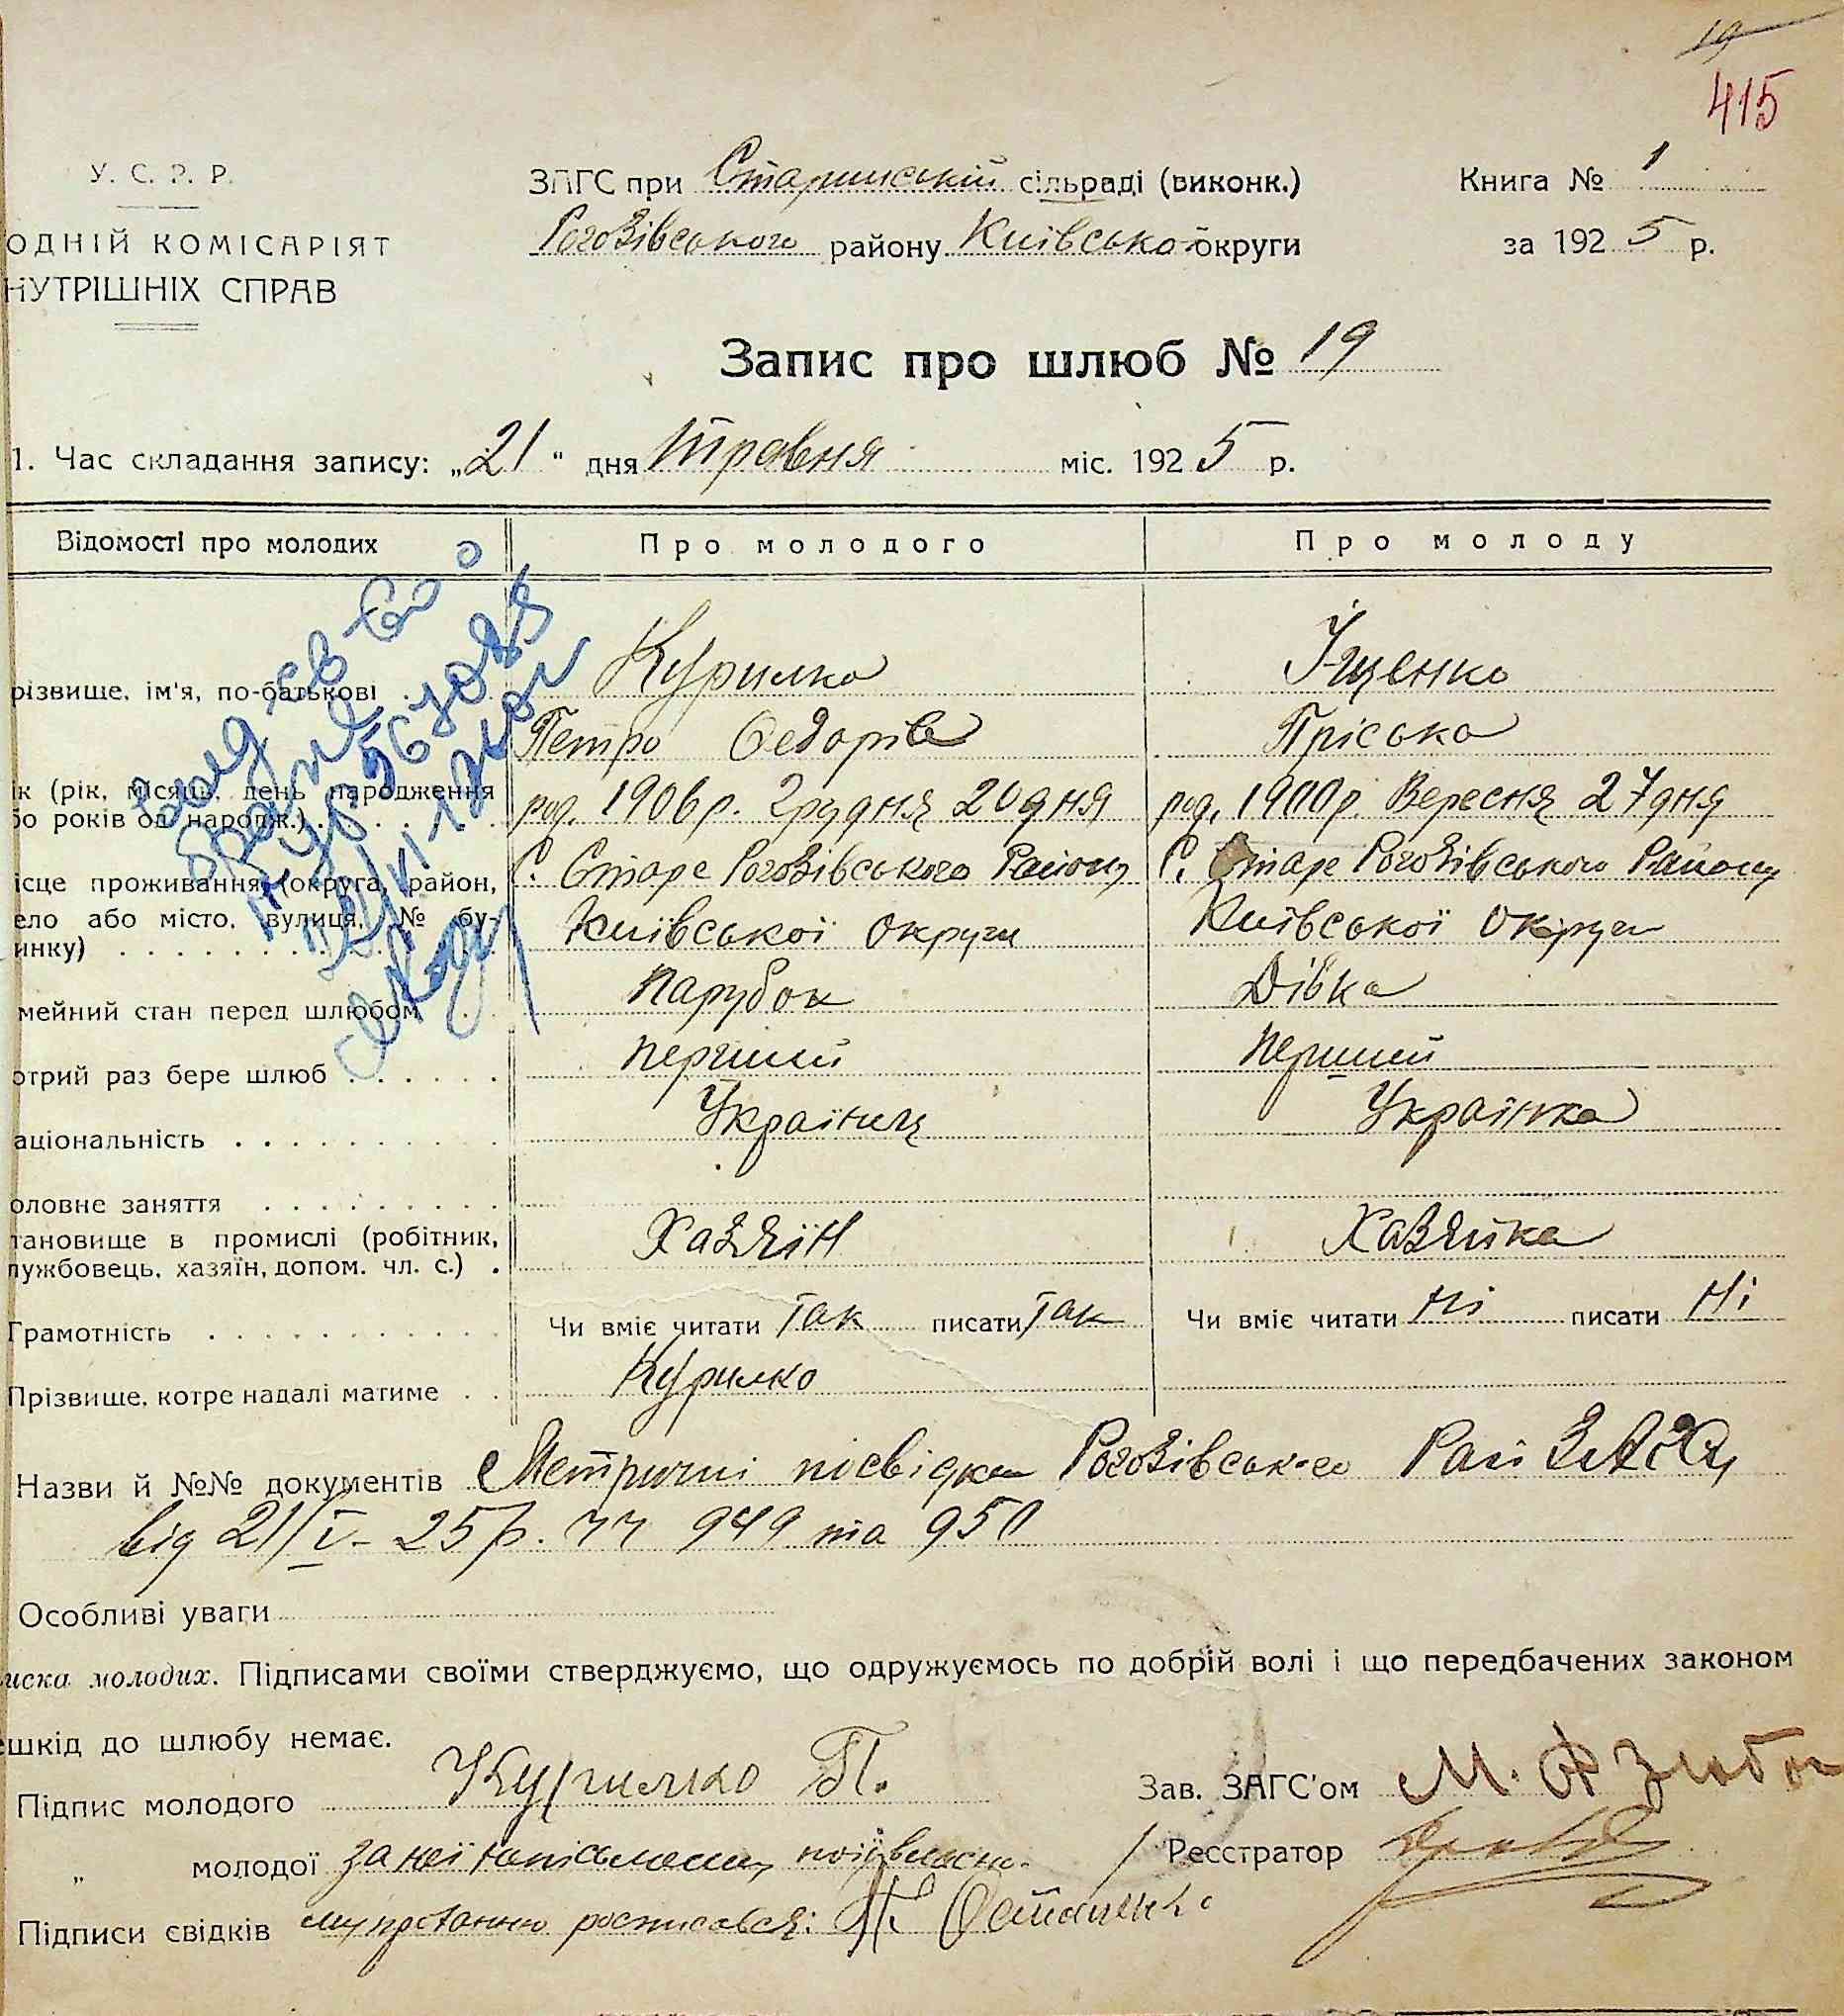 19
415
У. С. Р. Р.
ОДНІЙ КОМІСАРІЯТ
НУТРІШНІХ СПРАВ
ЗАГС при Старинській сільраді (виконк.)
Рогозівського району Київсько округи
Книга № 1
за 192 5 р.
Запис про шлюб № 19
1. Час складання запису: „21" дня Травня міс. 192 5 р.
Відомості про молодих Про молодого Про молоду
різвище, ім'я, по-батькові Курилко Іщенко
Петро Федорів Пріська
ік (рік, місяць, день народження
бо років од народж.) род. 1906 р. Грудня 20 дня род. 1900 р. Вересня 27 дня
ісце проживання (округа, район, С. Старе Рогозівського Району С. Старе Рогозівського Району
ело або місто, вулиця, № бу-
инку) Київської Округи Київської Округи
мейний стан перед шлюбом Парубок Дівка
отрий раз бере шлюб перший перший
аціональність Українець Українка
оловне заняття
тановище в промислі (робітник,
лужбовець, хазяїн, допом. чл. с.) Хазяїн Хазяйка
Грамотність Чи вміє читати Так писати Так Чи вміє читати Ні писати Ні
Прізвище, котре надалі матиме Курилко
Назви й №№ документів Метричні посвідки Рогозівського Рай ЗАГСу
від 21/V - 25 р. 949 та 950
Особливі уваги
иска молодих. Підписами своїми стверджуємо, що одружуємось по добрій волі і що передбачених законом
ешкід до шлюбу немає.
Підпис молодого Курилко П. Зав. ЗАГС'ом М.
„ молодої за неї Реєстратор
Підписи свідків росписався: